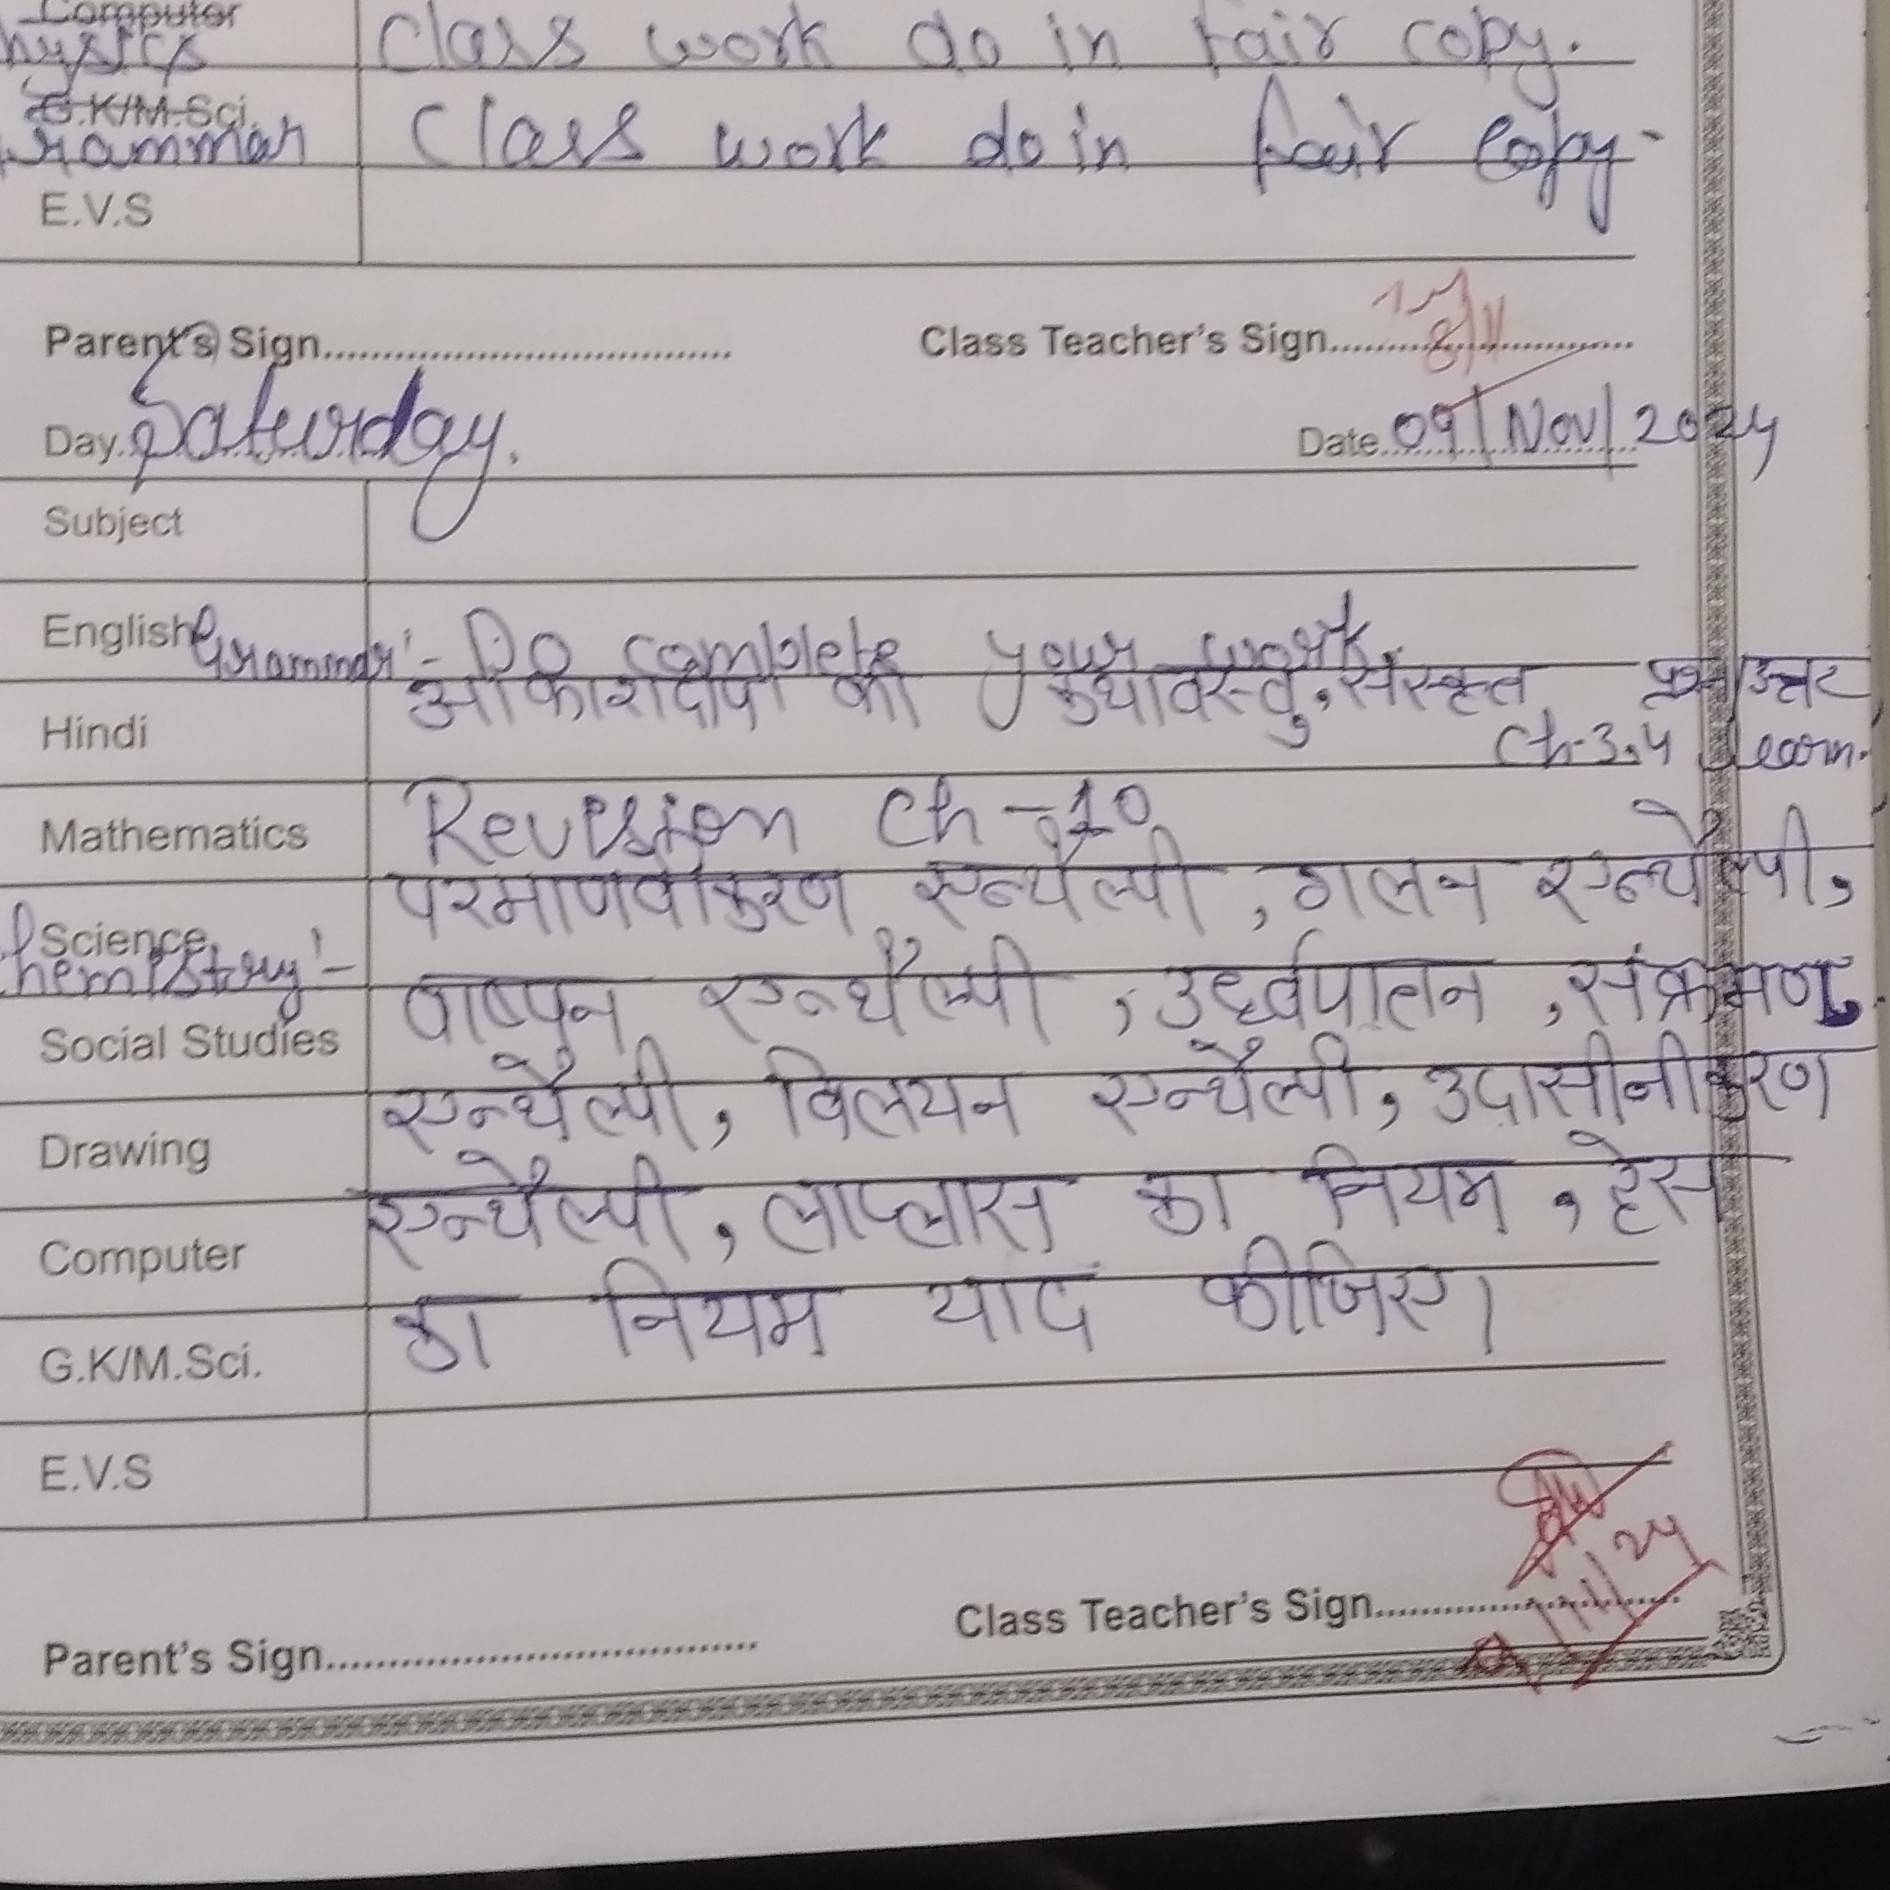 Computer
Physics Class work do in fair copy.
G.K/M.Sci.
Grammar Class work do in fair copy.
E.V.S
Parent's Sign........ Class Teacher's Sign........
8/11
Day. Saturday. Date. 09/Nov/2024
Subject
English Grammar:- Do complete your work.
Hindi आकाशदीप की कथावस्तु, संस्कृत प्रश्न उत्तर
Ch-3,4 learn.
Mathematics Revision Ch-10
परमाणवीकरण एन्थैल्पी, गलन एन्थैल्पी,
Science
Chemistry:- वाष्पन एन्थैल्पी, उर्ध्वपातन, संक्रमण
Social Studies
एन्थैल्पी, विलयन एन्थैल्पी, उदासीनीकरण
Drawing
एन्थैल्पी, लाप्लास का नियम, हेस
Computer
का नियम याद कीजिए।
G.K/M.Sci.
E.V.S
Parent's Sign........ Class Teacher's Sign........
9/11/24